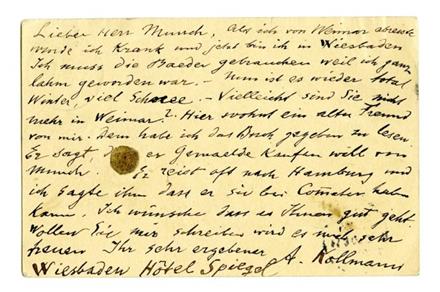 Lieber Herr Munch, Als ich von Weimar abreiste
wurde ich Krank und jetzt bin ich in Wiesbaden
Ich muss die Baeder gebrauchen weil ich ganz
lahm geworden war. — Nun ist es wieder total
Winter, viel Schnee. — Vielleicht sind Sie nicht
mehr in Weimar? Hier wohnt ein alter Freund
von mir. dem habe ich das Buch gegeben zu lesen.
Er sagt, er Gemaelde Kaufen will von
Munch. Er reist oft nach Hamburg und
ich sagte ihm dass er sie bei Cometer haben
Kann. Ich wünsche dass es Ihnen gut geht
Wollen Sie mir schreiben wird es mich sehr
freuen Ihr sehr ergebener A. Kollmann
Wiesbaden Hôtel Spiegel